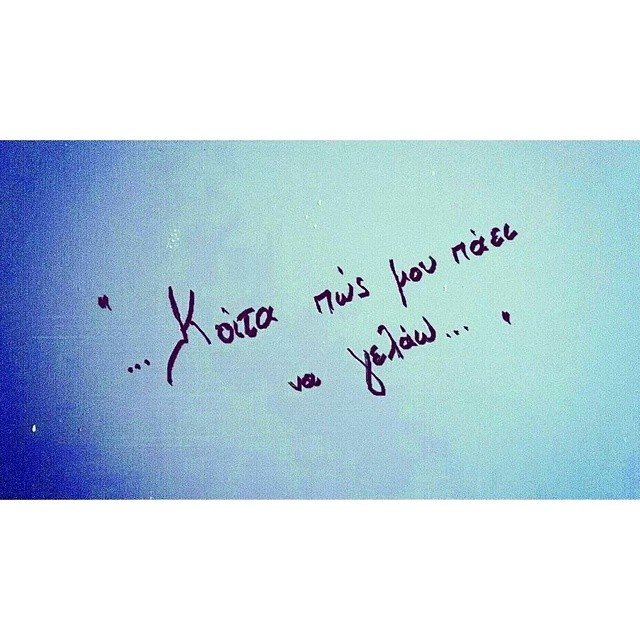 "... Κοίτα πώς μου πάει
να γελάω... "